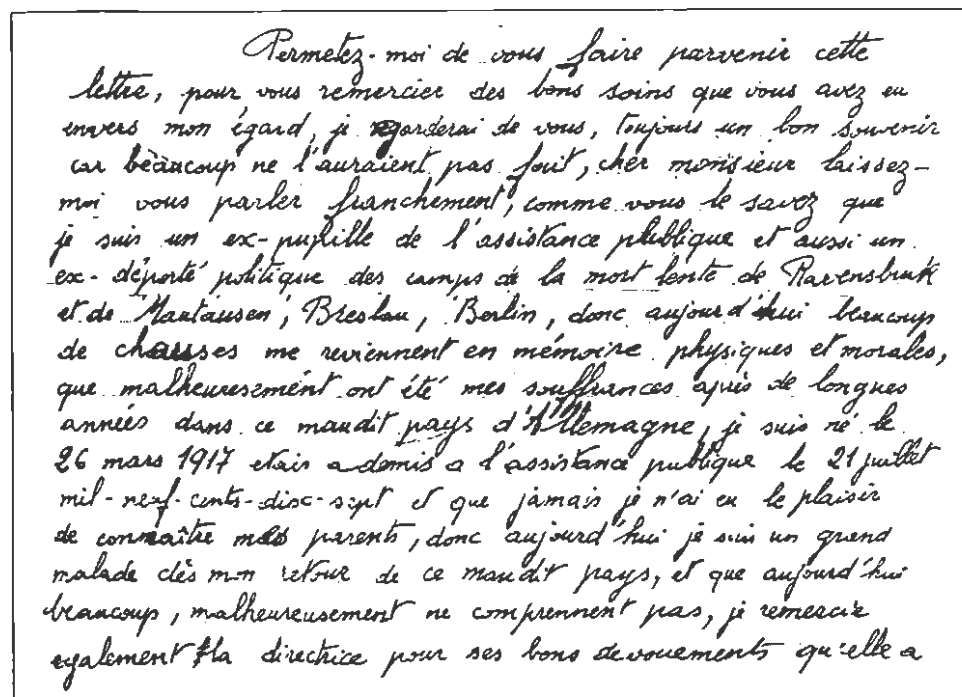 Permetez-moi de vous faire parvenir cette
lettre, pour vous remercier des bons soins que vous avez eu
envers mon égard, je garderai de vous, toujours un bon souvenir
car beaucoup ne l'auraient pas fait, cher monsieur laissez-
moi vous parler franchement, comme vous le savez que
je suis un ex-pupille de l'assistance plublique et aussi un
ex-déporté politique des camps de la mort lente de Ravensbruk
et de Mautausen, Breslau, Berlin, donc aujourd'hui beaucoup
de chauses me reviennent en mémoire physiques et morales,
que malheuresemént ont été mes souffrances après de longues
années dans ce maudit pays d'Allemagne, je suis né le
26 mars 1917 etais ademis a l'assistance publique le 21 juillet
mil-neuf-cents-disc-sept et que jamais je n'ai eu le plaisir
de connaître mes parents, donc aujourd'hui je suis un grand
malade dès mon retour de ce maudit pays, et que aujourd'hui
beaucoup, malheureusement ne comprennent pas, je remercie
egalement la directrice pour ses bons devouements qu'elle a